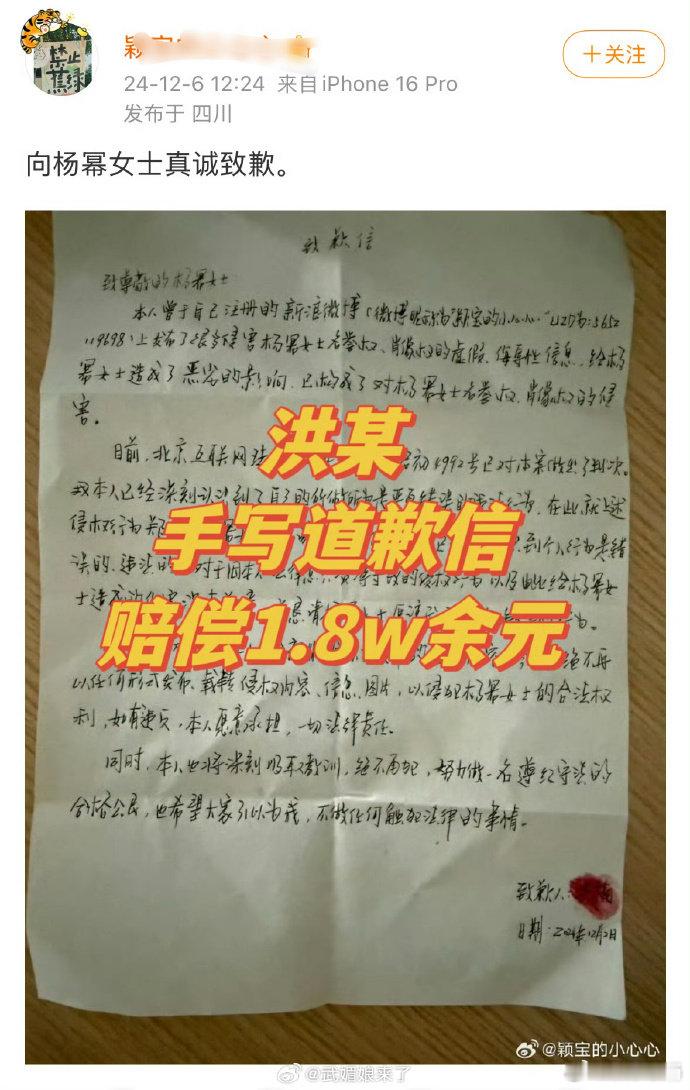 禁止
蕉绿
颖宝
24-12-6 12:24 来自iPhone 16 Pro
发布于 四川
+关注
向杨幂女士真诚致歉。
致歉信
致尊敬的杨幂女士
本人曾于自己注册的新浪微博(微博昵称为"颖宝的小心心" UID为:5652
119698)上发布了很多侵害杨幂女士名誉权、肖像权的虚假、侮辱性信息,给杨
幂女士造成了恶劣的影响,已构成了对杨幂女士名誉权、肖像权的侵
害。
目前,北京互联网法 初4992号已对本案做出了判决。
本人已经深刻认识到了自己的 在此,就上述
洪某
侵权行为 到个人行为是错
误的、违法的 对于因本人 以及由此给杨幂女
手写道歉信
士造成的
赔偿1.8w余元
绝不再
以任何形式发布、载转侵权内容、信息、图片,以侵犯杨幂女士的合法权
利,如有违反,本人愿意承担一切法律责任。
同时,本人也将深刻吸取教训,绝不再犯,努力做一名遵纪守法的
合格公民,也希望大家引以为戒,不做任何触犯法律的事情。
致歉人:
日期:2024年12月2日
@颖宝的小心心
@武媚娘来了